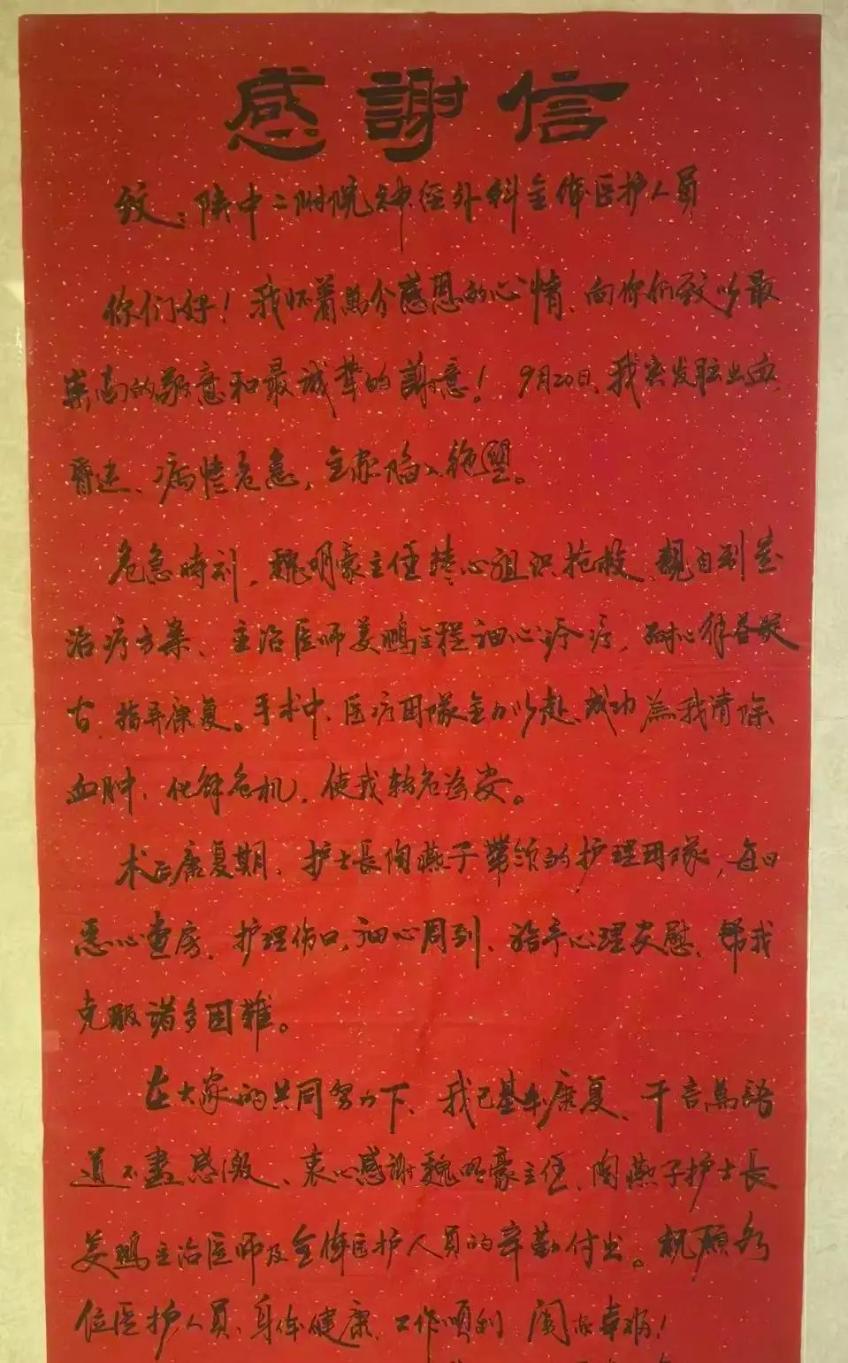 感謝信
致：陕中二附院神经外科全体医护人员
你们好！我怀着萬分感恩的心情、向你们致以最
崇高的敬意和最诚挚的謝意！9月20日、我突发脑出血、
昏迷、病情危急，全家陷入绝望。
危急時刻，魏明豪主任精心组织抢救、親自制定
治疗方案、主治医师姜鹏全程细心诊疗，耐心解答疑
古、指导康复。手术中、医疗团隊全力以赴、成功為我清除
血肿、化解危机，使我转危為安。
术后康复期、护士長陶燕子带领的护理团隊，每日
悉心查房、护理伤口，细心周到、指导心理安慰、帮我
克服诸多困難。
在大家的共同努力下、我已基本康复、千言萬語
道不盡感激、衷心感謝魏明豪主任、陶燕子护士長
姜鹏主治医师及全体医护人员的辛勤付出。祝願各
位医护人员、身体健康、工作顺利 阖家幸福！